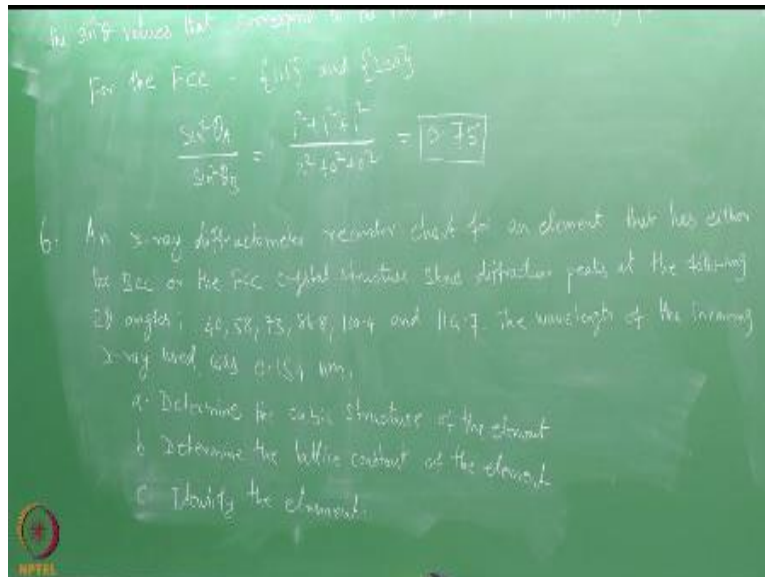 the sin²θ values that correspond to the
For the FCC - {111} and {200}
sin²θA / sin²θB = 1²+1²+1² / 2²+0²+0² = 0.75
6. An x-ray diffractometer recorder chart for an element that has either
the BCC or the FCC crystal structure shows diffraction peaks at the following
2θ angles; 40, 58, 73, 86.8, 100.4 and 114.7. The wavelength of the incoming
x-ray used was 0.154 nm.
a. Determine the cubic structure of the element
b. Determine the lattice constant of the element
c. Identify the element.
NPTEL